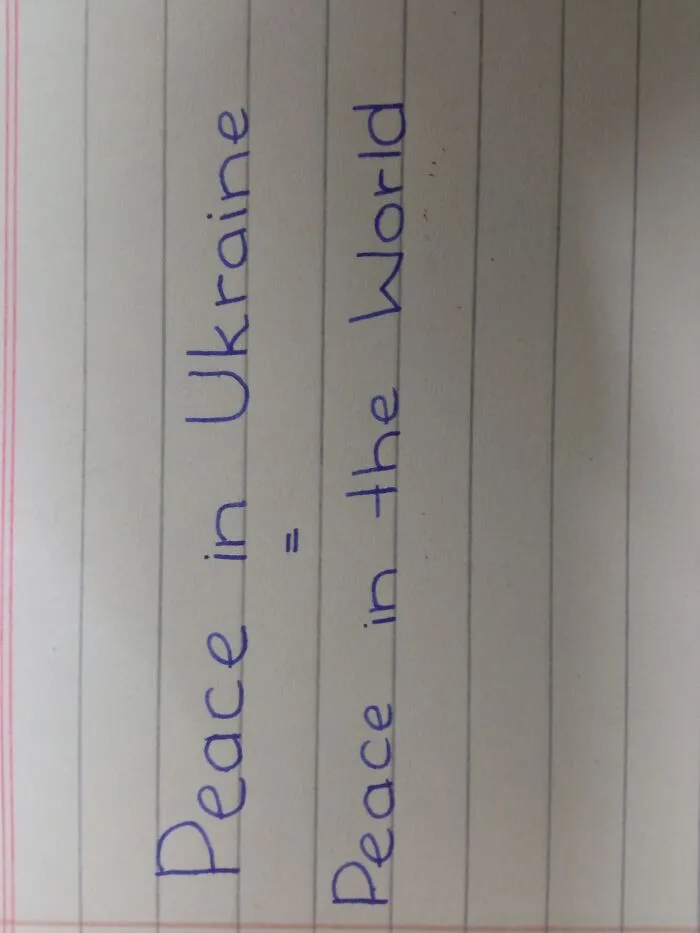 Peace in Ukraine
=
Peace in the World